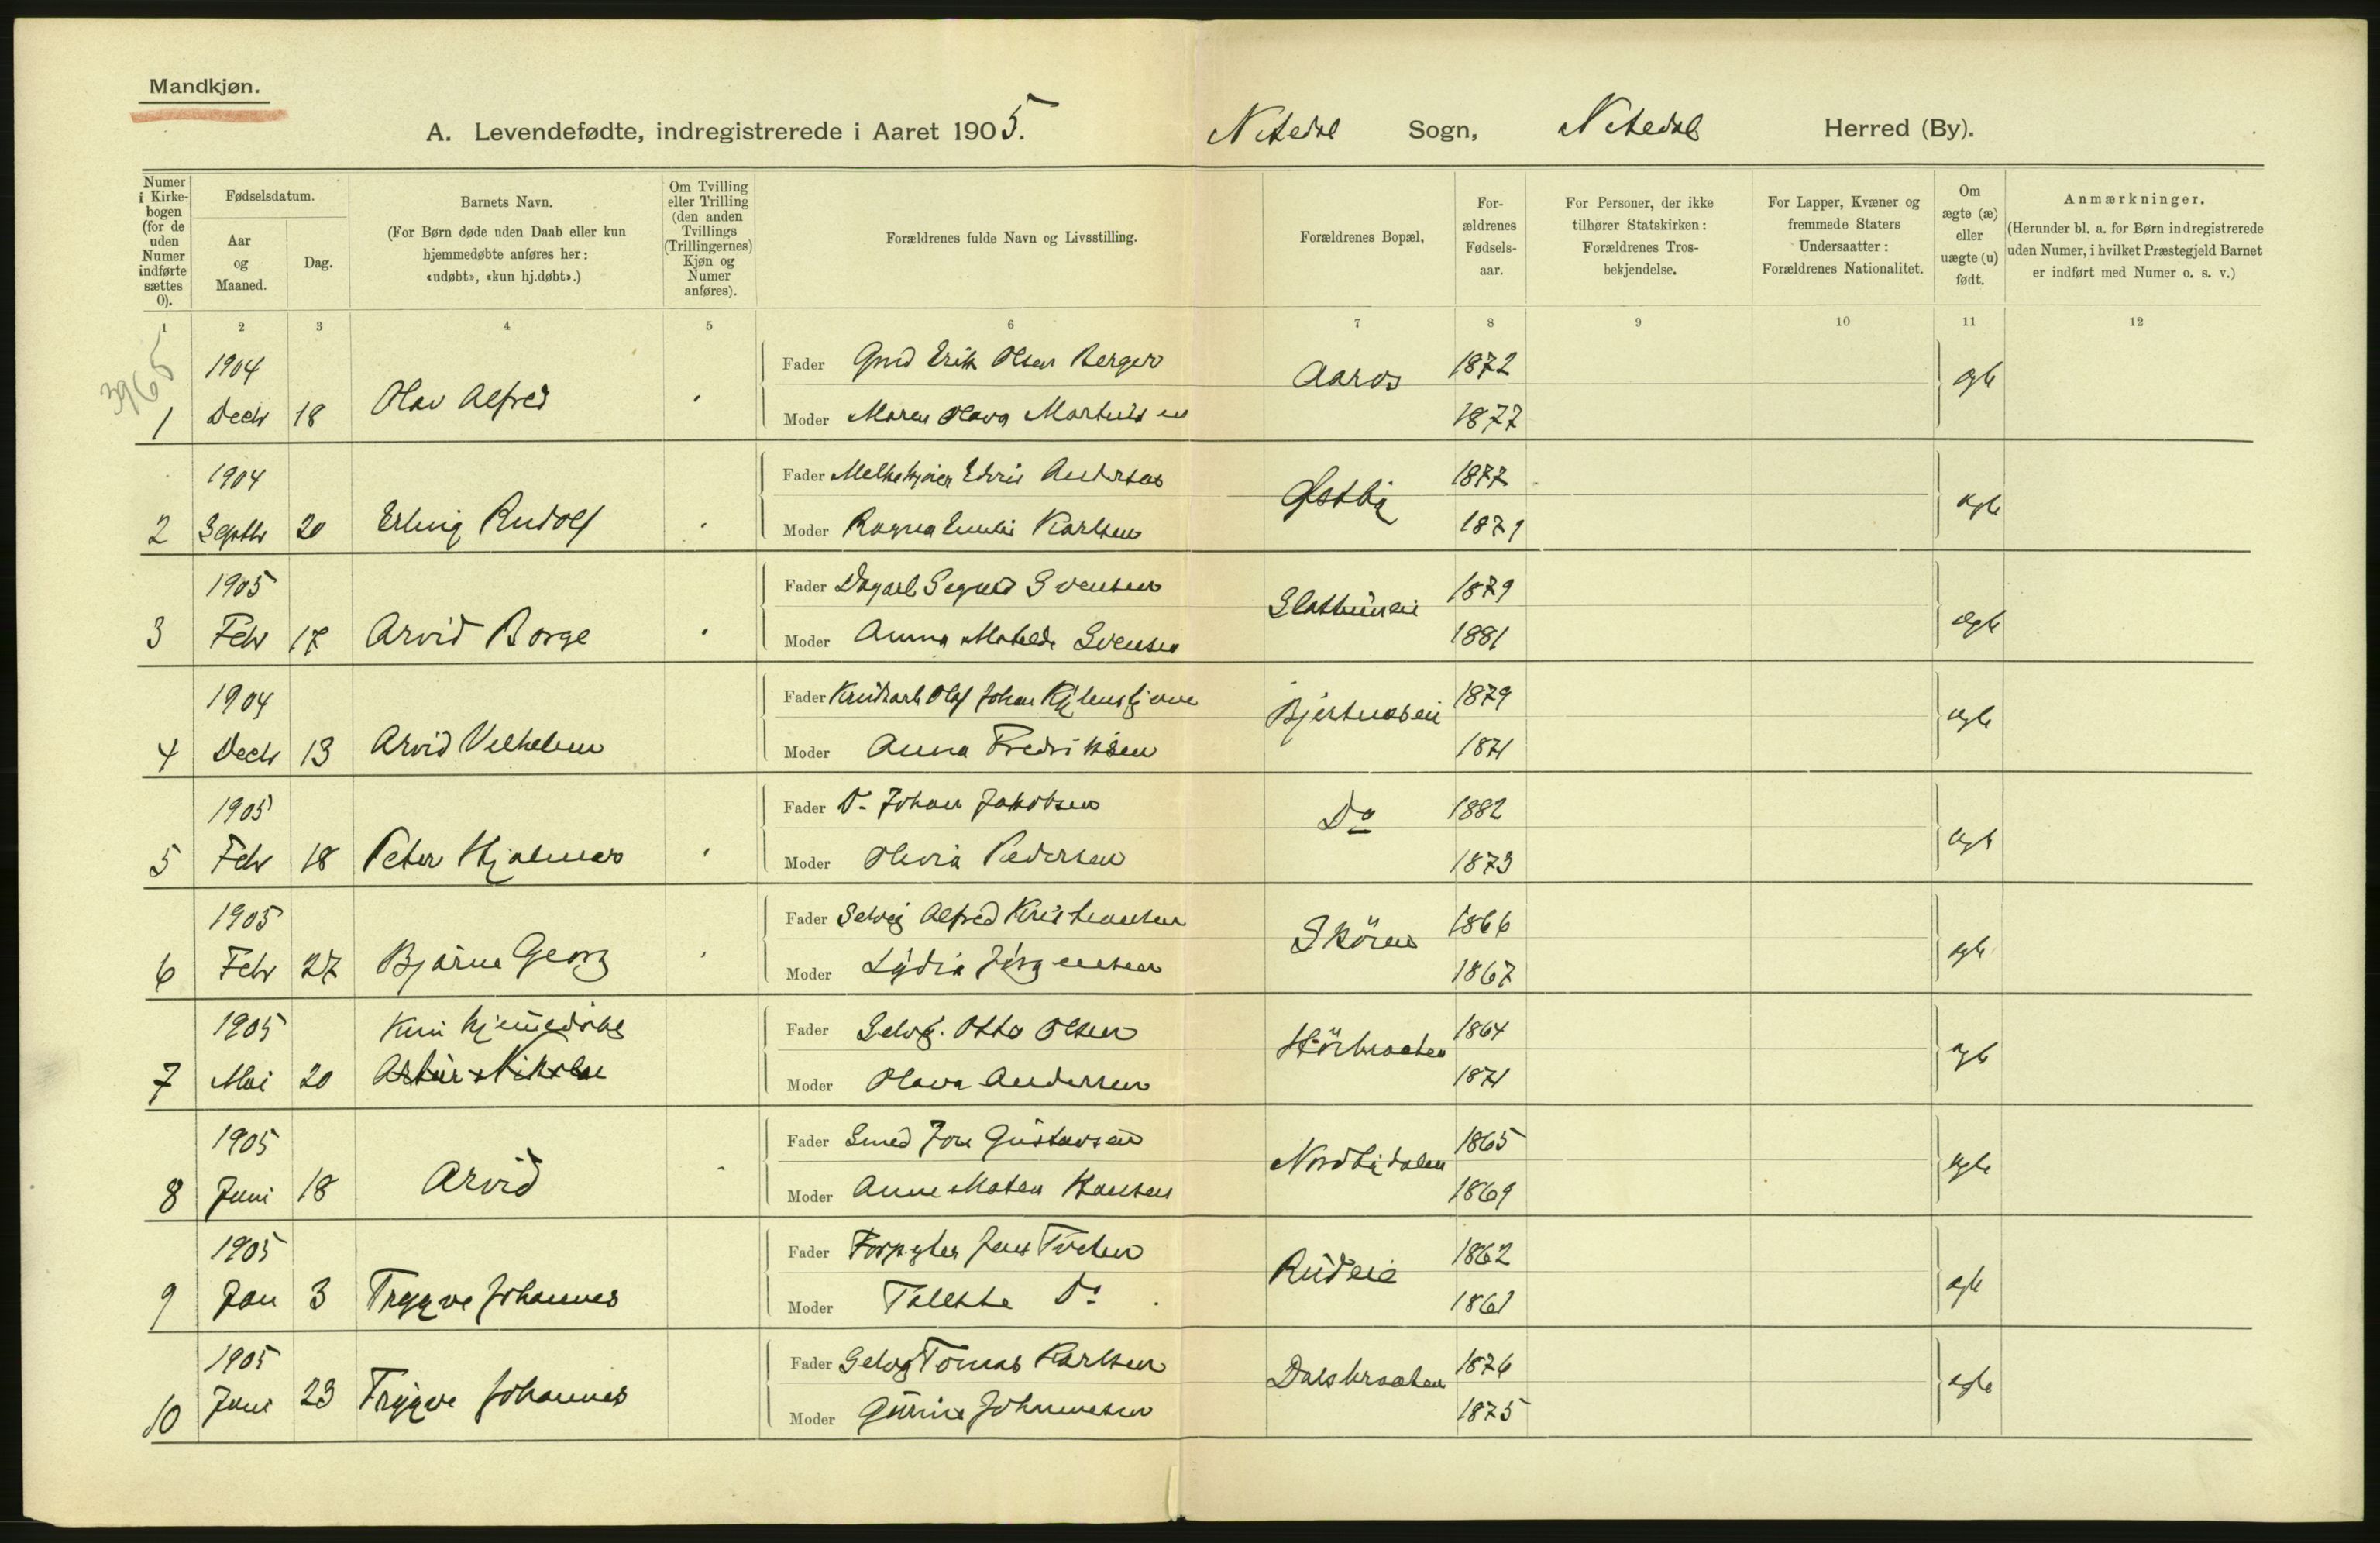 Mandkjøn.
A. Levendefødte, indregistrerede i Aaret 1905. Nitedal Sogn, Nitedal Herred (By).
Numer i Kirkebogen (for de uden Numer indførte sættes 0).
Fødselsdatum.
Aar og Maaned.
Dag.
Barnets Navn.
(For Børn døde uden Daab eller kun hjemmedøbte anføres her: «udøbt», «kun hj.døbt».)
Om Tvilling eller Trilling (den anden Tvillings (Trillingernes) Kjøn og Numer anføres).
Forældrenes fulde Navn og Livsstilling.
Forældrenes Bopæl,
Forældrenes Fødselsaar.
For Personer, der ikke tilhører Statskirken: Forældrenes Trosbekjendelse.
For Lapper, Kvæner og fremmede Staters Undersaatter: Forældrenes Nationalitet.
Om ægte (æ) eller uægte (u) født.
Anmærkninger.
(Herunder bl. a. for Børn indregistrerede uden Numer, i hvilket Præstegjeld Barnet er indført med Numer o. s. v.)
1 2 3 4 5 6 7 8 9 10 11 12
3965
1904 Fader Gmd Erik Olsen Berger Aaros 1872 ægte
1 Decbr 18 Olav Alfred Moder Maren Olava Martinsen 1877
1904 Fader Melkekjører Edvin Andersen Østby 1877 ægte
2 Septbr 20 Erling Rudolf Moder Ragna Emilie Karlsen 1879
1905 Fader Dagarb Sigurd Svensen 1879 ægte
3 Febr 17 Arvid Borge Moder Anna Matilde Svensen 1881
1904 Fader Olaf Johan 1879 ægte
4 Decbr 13 Arvid Vilhelm Moder Anna Fredriksen 1871
1905 Fader D. Johan Jakobsen Do 1882 ægte
5 Febr 18 Peter Hjalmar Moder Olivia Pedersen 1873
1905 Fader Selveig Alfred Kristiansen Skören 1866 ægte
6 Febr 27 Bjarne Georg Moder Lydia Jörgensen 1867
1905 Kun hjemmedöbt Fader Selvg. Otto Olsen 1864 ægte
7 Mai 20 Artur Nikolai Moder Olava Andersen 1871
1905 Fader Smed Jon Gustavsen Nordbydalen 1865 ægte
8 Juni 18 Arvid Moder Anne Matea Hansen 1869
1905 Fader Forpagter Jens Rudeie 1862 ægte
9 Jan 3 Trygve Johannes Moder Do 1861
1905 Fader Selvg Tomas Karlsen Dalsbraaten 1876 ægte
10 Juni 23 Trygve Johannes Moder Gurine Johannesen 1875